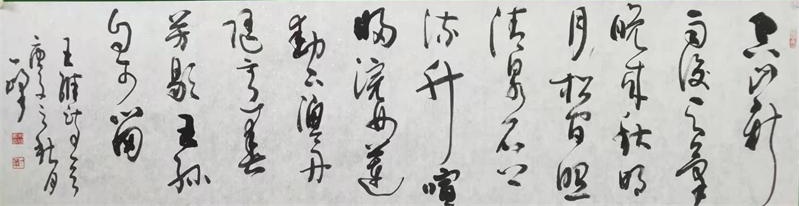 空山新
雨後天氣
晚来秋明
月松间照
清泉石上
流竹喧
歸浣女蓮
動下漁舟
随意春
芳歇王孫
自可留
王維詩
庚子之秋月